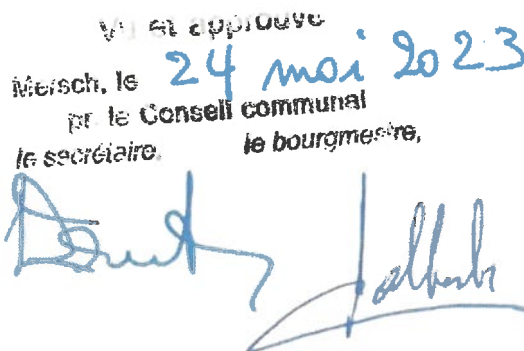 Vu et approuvé
Mersch, le 24 mai 2023
pr. le Conseil communal
le secrétaire, le bourgmestre,